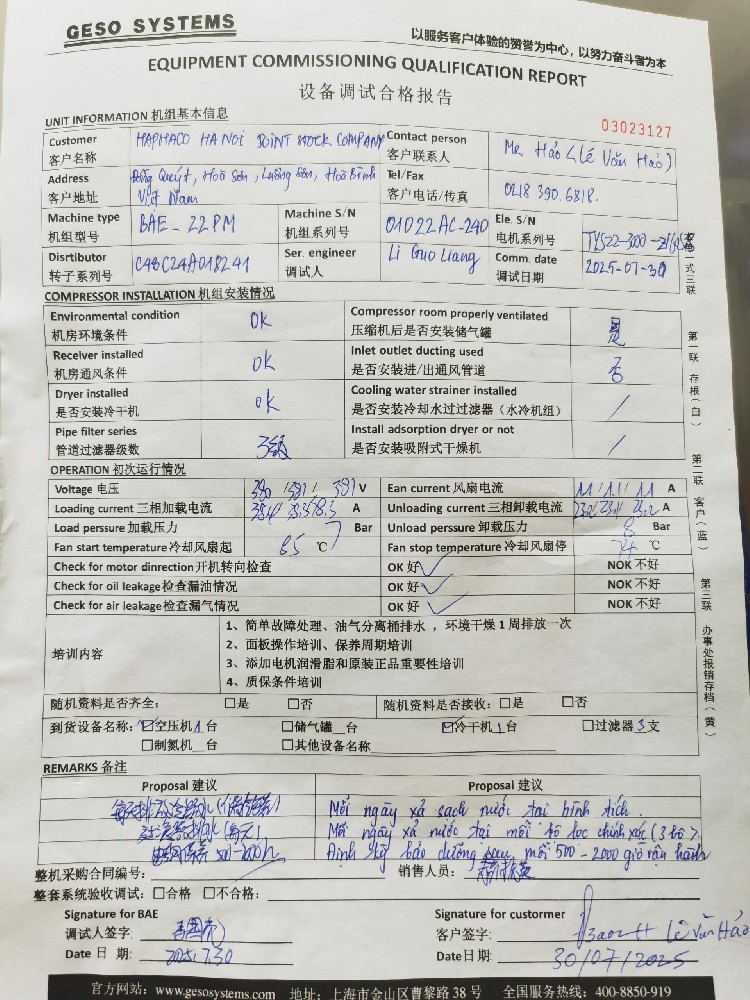 GESO SYSTEMS
以服务客户体验的赞誉为中心，以努力奋斗者为本
EQUIPMENT COMMISSIONING QUALIFICATION REPORT
设备调试合格报告
03023127
UNIT INFORMATION 机组基本信息
Customer 客户名称 HAPHACO HA NOI JOINT STOCK COMPANY
Contact person 客户联系人 Mr Hảo (Lê Văn Hảo)
Address 客户地址 Hoà Sơn, Lương Sơn, Hoà Bình Việt Nam
Tel/Fax 客户电话/传真 0218 390.6818.
Machine type 机组型号 BAE - 22 PM
Machine S/N 机组系列号 01022AC-240
Ele. S/N 电机系列号
Disrtibutor 转子系列号 C48C24A018241
Ser. engineer 调试人 Li Guo Liang
Comm. date 调试日期 2025-07-30
一式三联
COMPRESSOR INSTALLATION 机组安装情况
Environmental condition 机房环境条件 OK
Compressor room properly ventilated 压缩机后是否安装储气罐 是
Receiver installed 机房通风条件 OK
Inlet outlet ducting used 是否安装进/出通风管道 否
Dryer installed 是否安装冷干机 OK
Cooling water strainer installed 是否安装冷却水过过滤器（水冷机组） /
Pipe filter series 管道过滤器级数 3级
Install adsorption dryer or not 是否安装吸附式干燥机 /
第一联 存根（白）
第二联 客户（蓝）
第三联 办事处报销存档（黄）
OPERATION 初次运行情况
Voltage 电压 380 /381/ 381 V
Ean current 风扇电流 1.1 / 1.1 / 1.1 A
Loading current 三相加载电流 A
Unloading current 三相卸载电流 A
Load perssure 加载压力 7 Bar
Unload perssure 卸载压力 8 Bar
Fan start temperature 冷却风扇起 85 ℃
Fan stop temperature 冷却风扇停 74 ℃
Check for motor dinrection 开机转向检查 OK 好 ✓ NOK 不好
Check for oil leakage 检查漏油情况 OK 好 ✓ NOK 不好
Check for air leakage 检查漏气情况 OK 好 ✓ NOK 不好
培训内容
1、简单故障处理、油气分离桶排水，环境干燥 1 周排放一次
2、面板操作培训、保养周期培训
3、添加电机润滑脂和原装正品重要性培训
4、质保条件培训
随机资料是否齐全： □是 □否 随机资料是否接收：□是 □否
到货设备名称：☑空压机 1 台 □储气罐 台 ☑冷干机 1 台 □过滤器 3 支
□制氮机 台 □其他设备名称
REMARKS 备注
Proposal 建议
Proposal 建议
Mỗi ngày xả sạch nước tại bình tích.
Mỗi ngày xả nước tại mỗi bộ lọc chính xác (3 bộ).
Định kỳ bảo dưỡng sau mỗi 500 - 2000 giờ vận hành
整机采购合同编号： 销售人员：
整套系统验收调试：□合格 □不合格：
Signature for BAE
调试人签字:
Date 日 期: 2025.7.30
Signature for custormer
客户签字: Lê Văn Hảo
Date日期: 30/07/2025
官方网站：www.gesosystems.com 地址：上海市金山区曹黎路 38 号 全国服务热线：400-8850-919